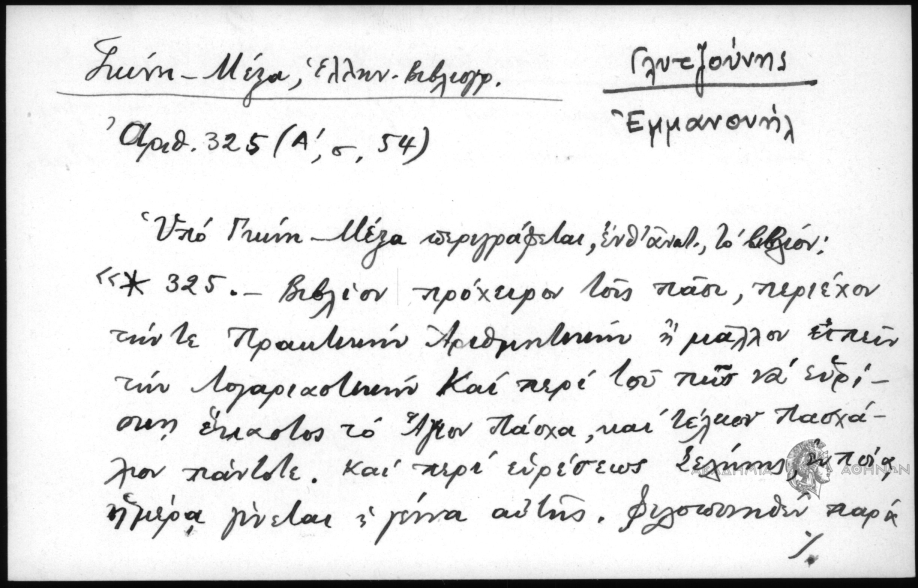 Γκίνη – Μέξα, Ἑλλην. Βιβλιογρ.
Γλυτζούνης
Ἐμμανουήλ
Ἀριθ. 325 (Α΄, σ. 54)
Ὑπό Γκίνη – Μέξα περιγράφεται, ἔνθ' ἀνωτ., τό βιβλίον:
«* 325. – Βιβλίον πρόχειρον τοῖς πᾶσι, περιέχον
τήν τε Πρακτικήν Ἀριθμητικήν ἢ μᾶλλον εἰπεῖν
τήν Λογαριαστικήν Καί περί τοῦ πῶς νά εὑρί-
σκῃ ἕκαστος τό Ἅγιον Πάσχα, καί τέλειον Πασχά-
λιον πάντοτε. Καί περί εὑρέσεως Σελήνης, ἐν ποίᾳ
ἡμέρᾳ γίνεται ἡ γέννα αὐτῆς. Φιλοπονηθέν παρά
./.
ΑΚΑΔΗΜΙΑ ΑΘΗΝΩΝ